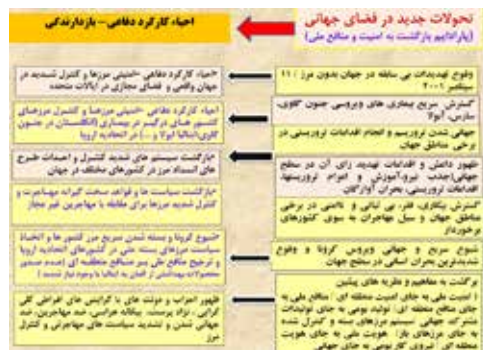 تحولات جدید در فضای جهانی
(پارادایم بازگشت به امنیت و منافع ملی)
احیاء کارکرد دفاعی – بازدارندگی
وقوع تهدیدات بی سابقه در جهان بدون مرز / ۱۱
سپتامبر ۲۰۰۱
گسترش سریع بیماری های ویروسی جنون گاوی،
سارس، ابولا
جهانی شدن تروریسم و انجام اقدامات تروریستی در
برخی مناطق جهان
ظهور داعش و اقدامات تهدید زای آن در سطح
جهانی(جذب نیرو،آموزش و اعزام تروریستها،
اقدامات تروریستی، بحران آوارگان
گسترش بیکاری، فقر، بی ثباتی و ناامنی در برخی
مناطق جهان و سیل مهاجران به سوی کشورهای
برخوردار
شیوع سریع و جهانی ویروس کرونا و وقوع
شدیدترین بحران انسانی در سطح جهان
برگشت به مفاهیم و نظریه های پیشین
( امنیت ملی به جای امنیت منطقه ای / منافع ملی به
جای منافع منطقه ای/ تولید بومی به جای تولیدات
مشترک جهانی /سیستم مرزهای بسته و کنترل شده
به جای مرزهای باز/ هویت ملی به جای هویت
منطقه ای/ نیروی کار بومی به جای جهانی
*احیاء کارکرد دفاعی -امنیتی مرزها و کنترل شدید در
جهان واقعی و فضای مجازی در ایالات متحده
احیاء کارکرد دفاعی -امنیتی مرزها و کنترل مرزهای
کشور های درگیر در بیماری (انگلستان در جنون
گاوی/ایتالیا ابولا و ...) در اتحادیه اروپا
*بازگشت سیستم های شدید کنترل و احداث طرح
های انسداد مرز در کشورهای مختلف در جهان
*بازگشت سیاست ها و قواعد سخت گیرانه مهاجرت و
کنترل شدید مرزها برای مقابله با مهاجرین غیر مجاز
*شیوع کرونا و بسته شدن سریع مرز کشور ها و اتخاذ
سیاست مرزهای بسته ملی در کشورهای اتحادیه اروپا
و ترجیح منافع ملی بر منافع منطقه ای (عدم صدور
محصولات بهداشتی از آلمان به ایتالیا با وجود نیاز شدید )
ظهور احزاب و دولت های با گرایش های افراطی ملی
گرایی ، نژاد پرست، بیگانه هراسی، ضد مهاجرین، ضد
جهانی شدن و تشدید سیاست های مهاجرتی و کنترل
مرز